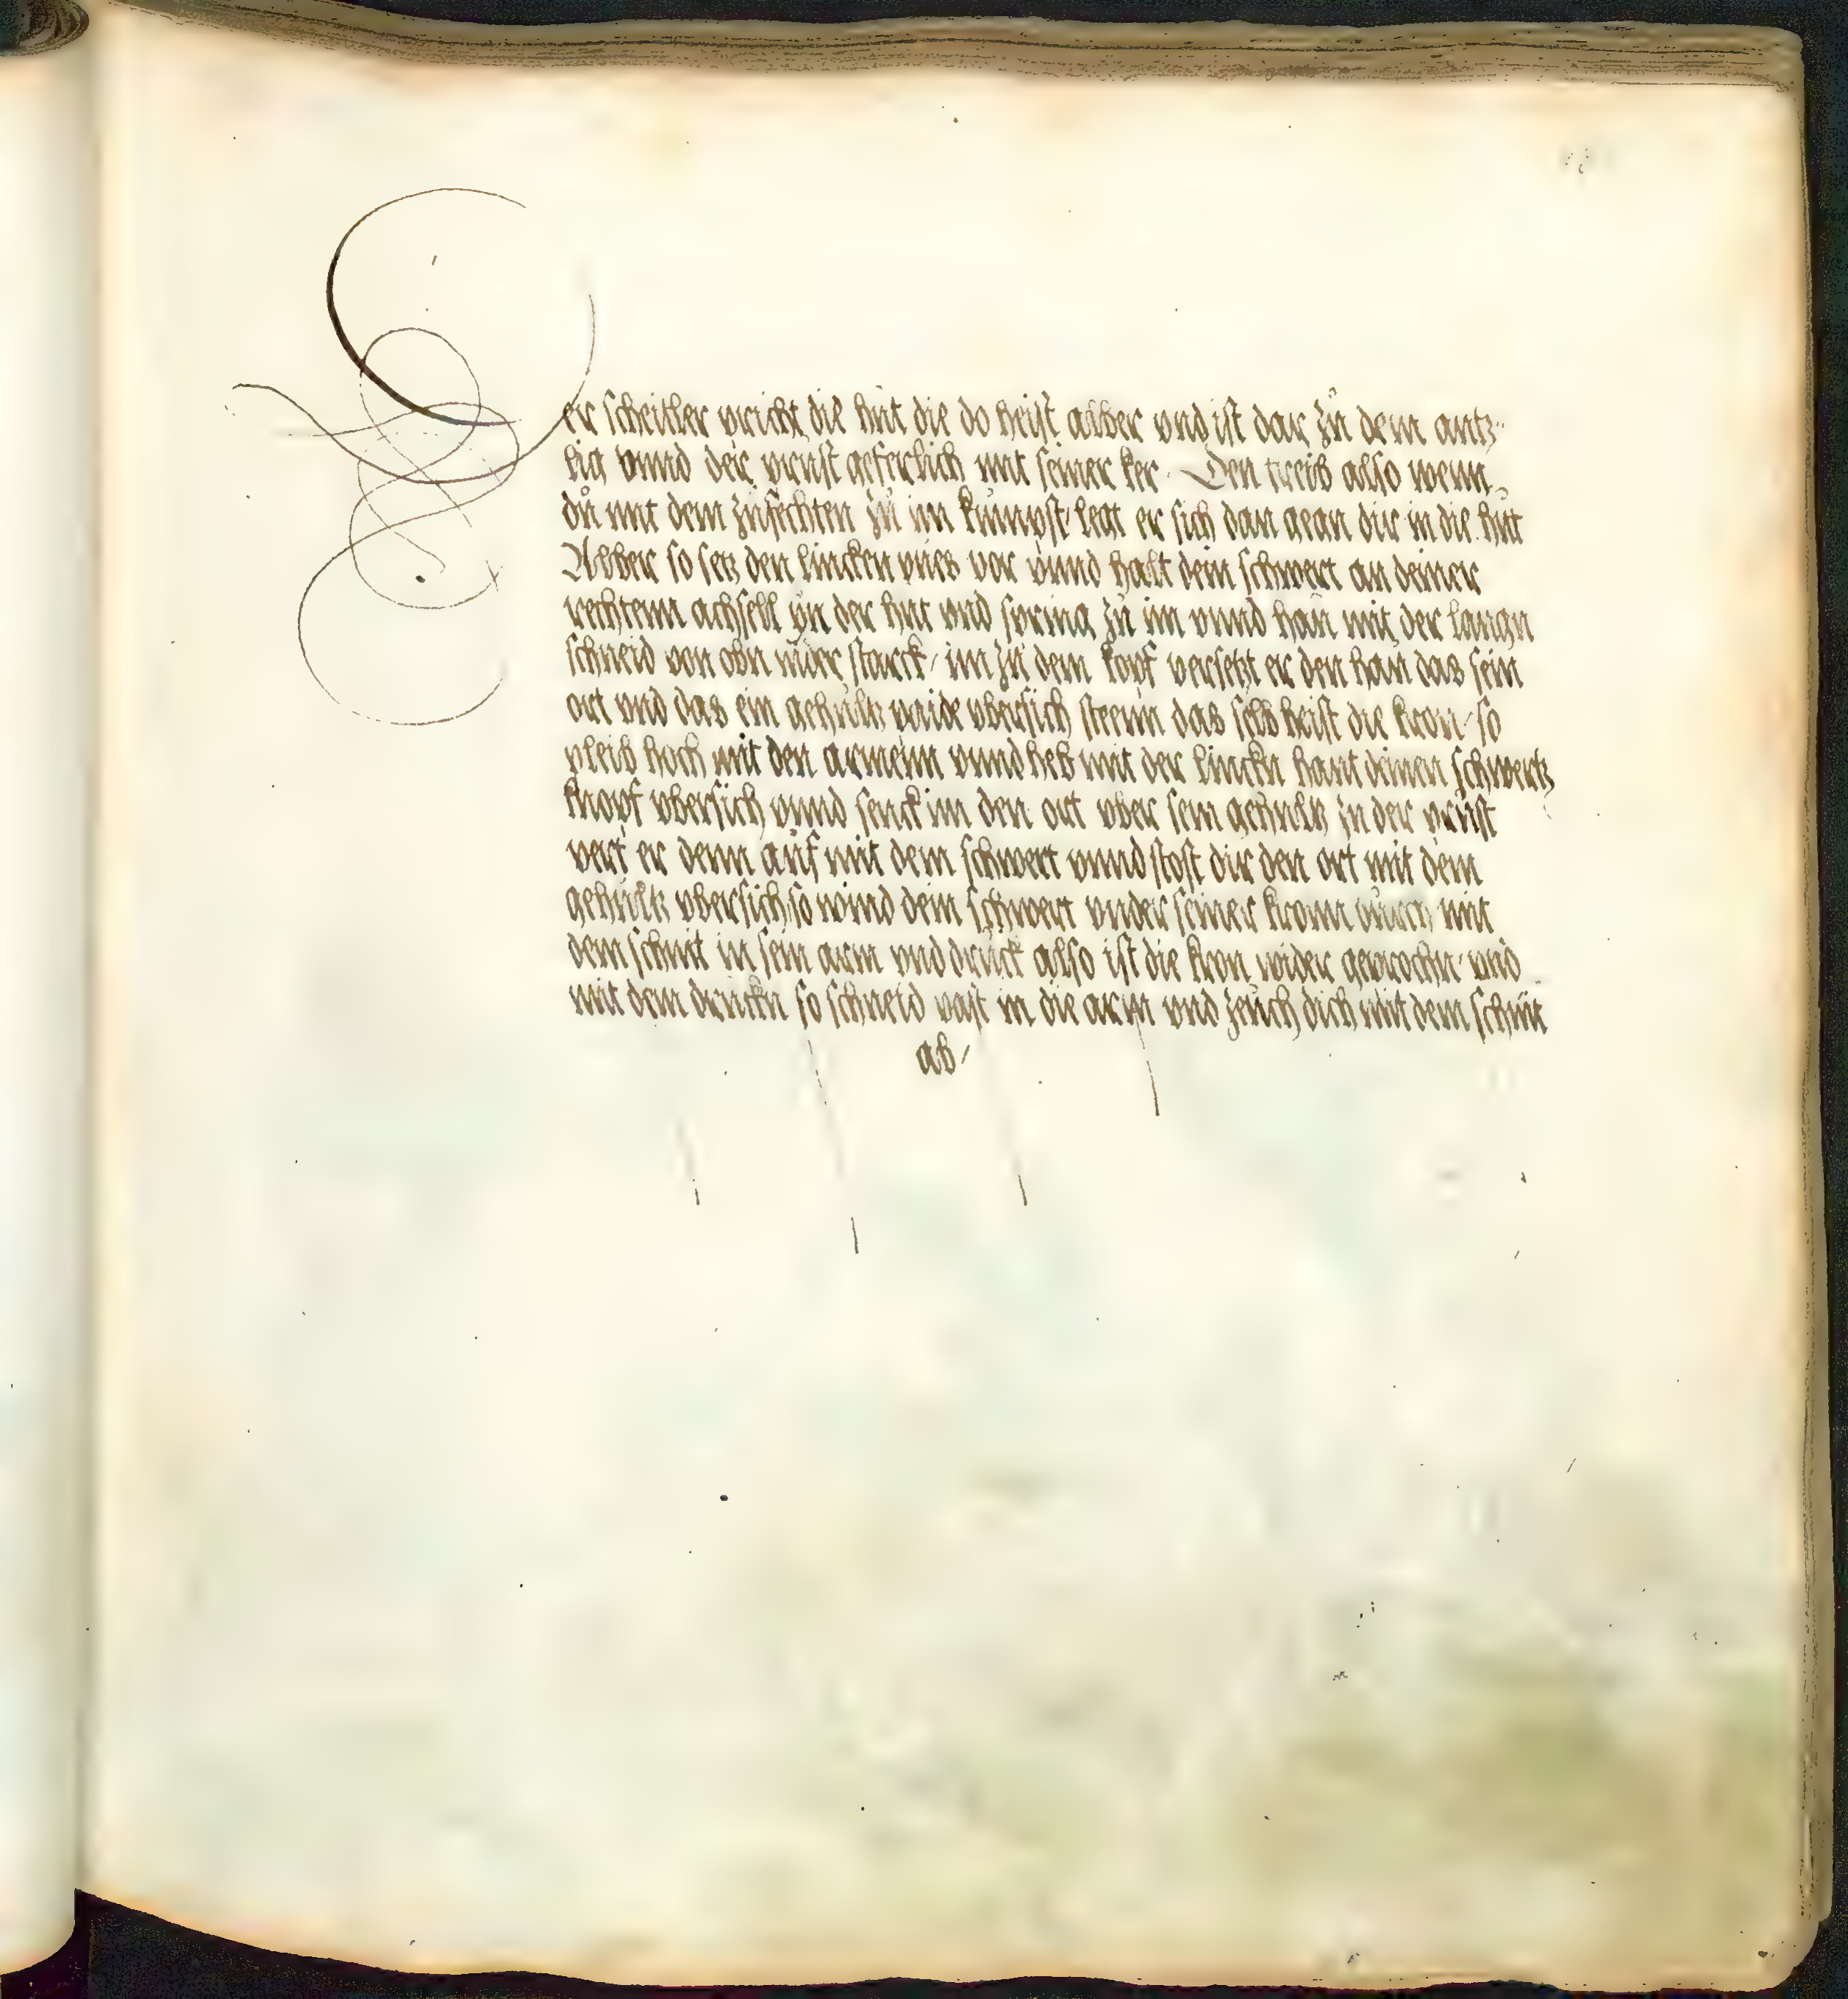 Der scheitler pricht die hut die do heist alber vnd ist dar zů dem antz-
lig vnnd der prust geferlich mit seiner ker · Den treib also wenn
dů mit dem zůfechten zů im kůmpst / legt er sich dan gean dir in die hut
Alber so setz den lincken vues vor vnnd halt dein schwert an deiner
rechtenn achsell yn der hut vnd spring zů im vnnd haů mit der langn
schneid von obn nider starck / im zů dem kopf versetzt er den haů das sein
ort vnd das ein gehůltz paide vbersich steenn das selb heist die kron / so
pleib hoch mit den armenn vnnd heb mit der linckn hant deinen schwertz
knopf vbersich vnnd senck im den ort vber sein gehultz zu der průst
vert er denn aůf mit dem schwert vnnd stost dir den ort mit dem
gehůltz vbersich so wind dein schwert vnder seiner kronn důrch mit
dem schnit in sein arm vnd drůck also ist die kron wider geprochn · vnd
mit dem druckn so schneid vast in die arm vnd zeůch dich mit dem schnit
ab /